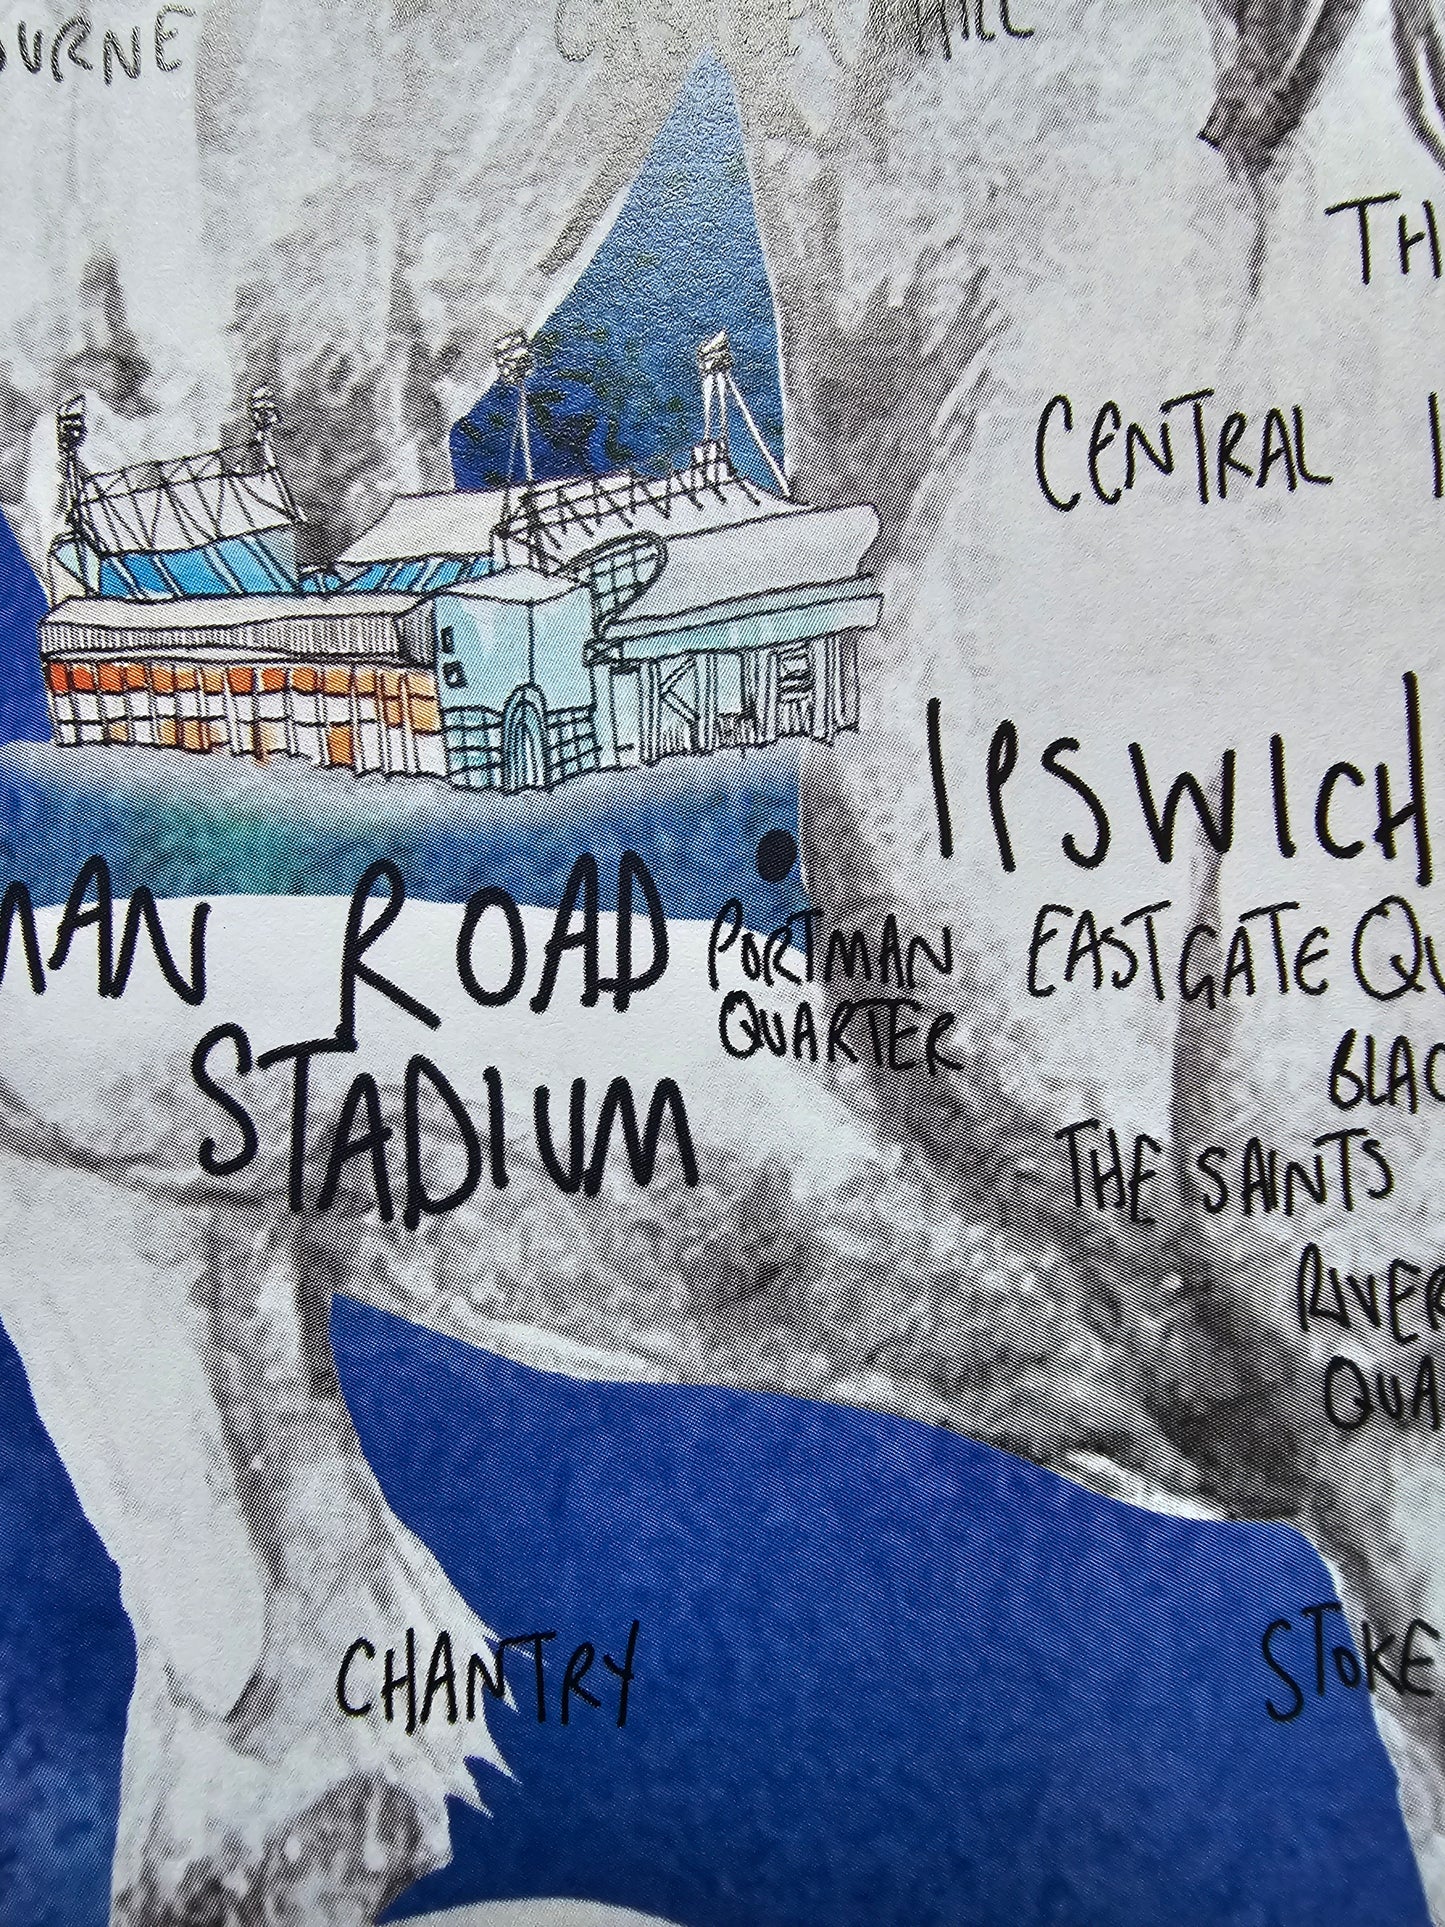 OURNE
HILL
TH
CENTRAL I
IPSWICH
MAN ROAD
STADIUM
PORTMAN
QUARTER
EASTGATE QU
BLAC
THE SAINTS
RIVER
QUA
CHANTRY
STOKE